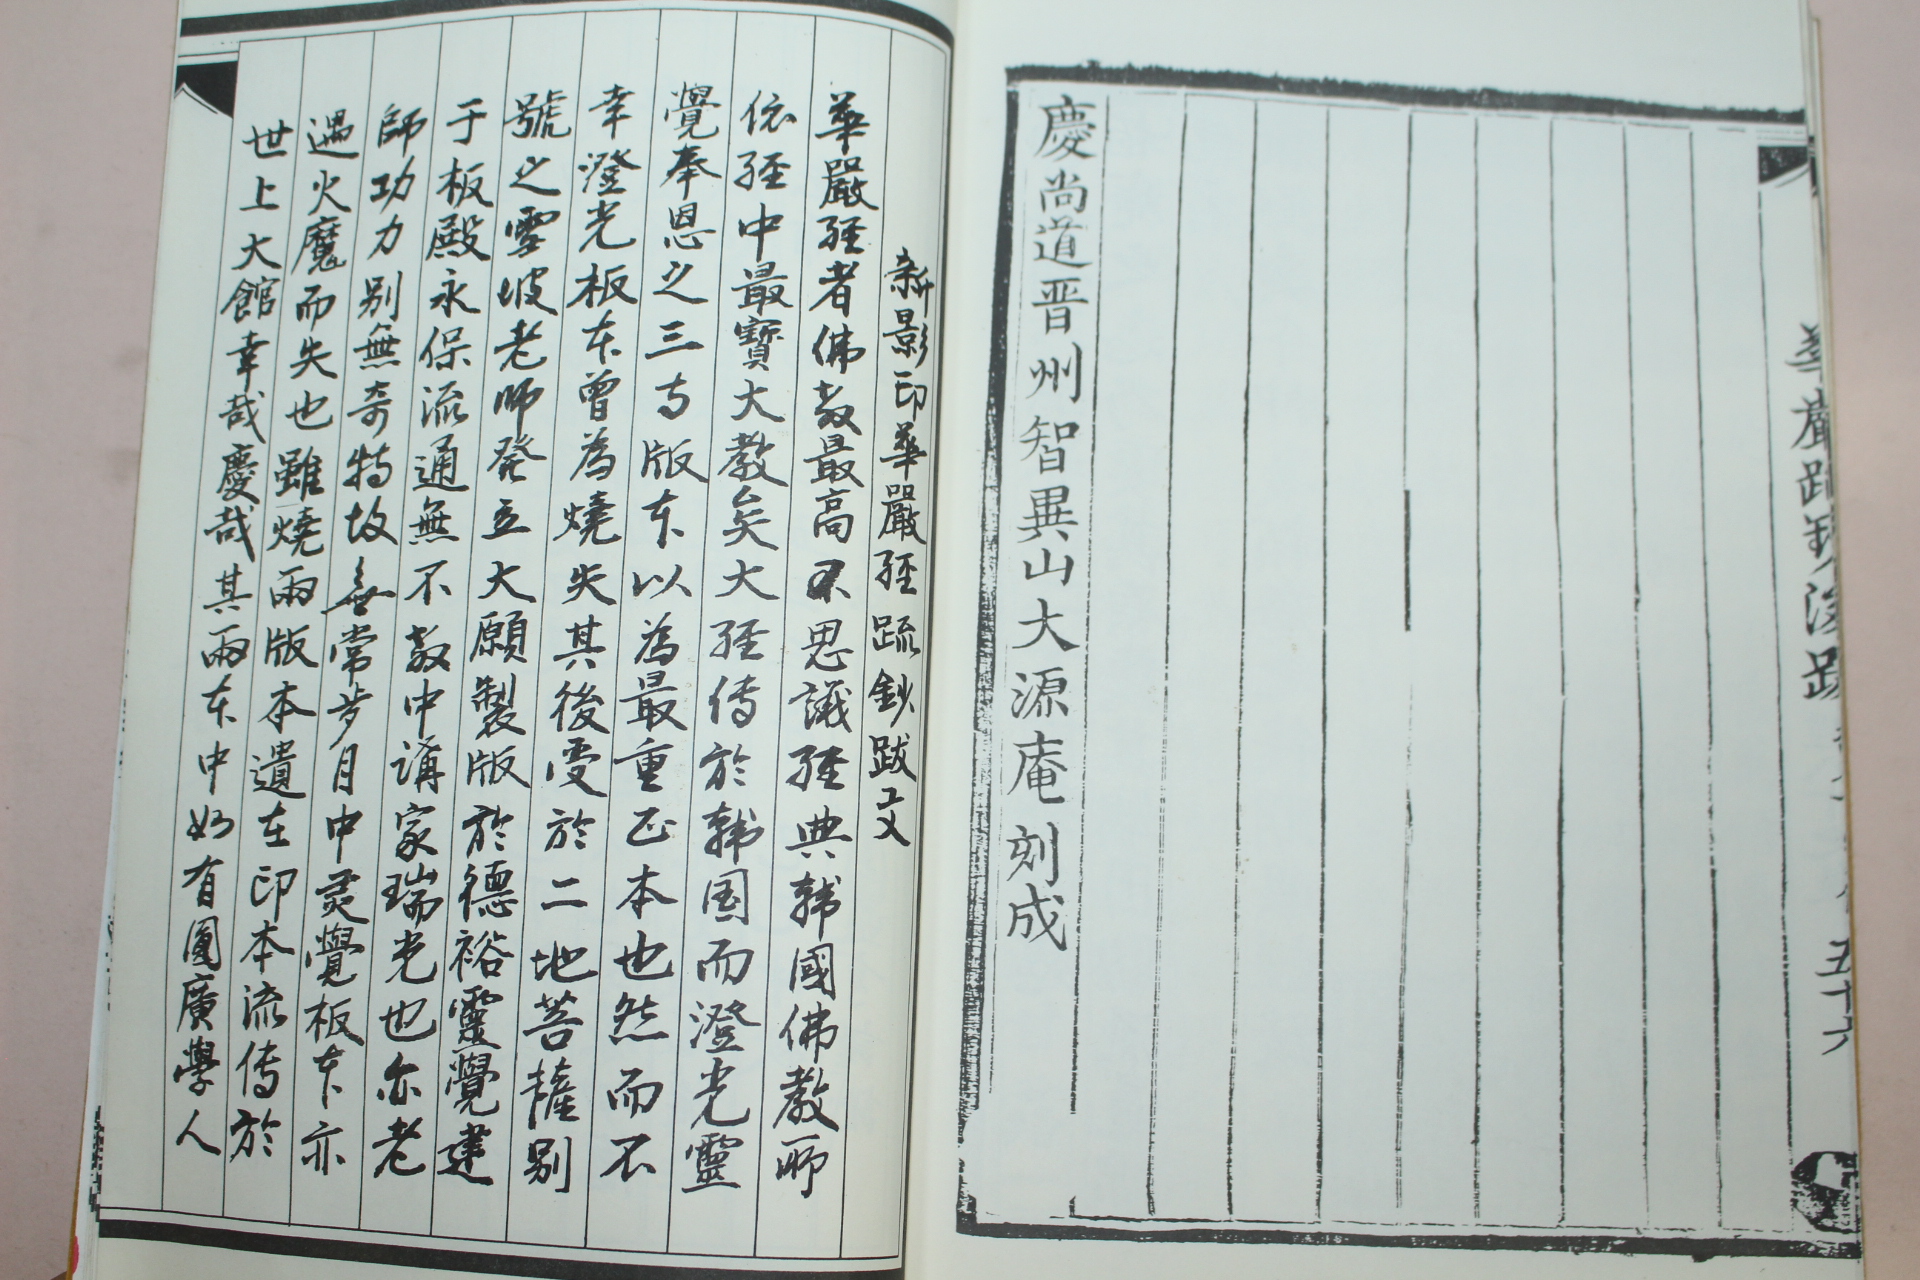 慶尚道晋州智異山大源庵刻成
新影印華嚴経疏鈔跋文
華嚴経者佛教最高不思議経典韓國佛教所
依経中最寶大教矣大経传於韩国而澄光靈
覺奉恩之三寺版本以為最重正本也然而不
幸澄光板本曾為燒失其後受於二地菩薩别
號之雪坡老师発立大願製版於德裕靈覺建
于板殿永保流通無不教中講家瑞光也亦老
師功力别無奇特故無常步月中灵覺板本亦
遇火魔而失也雖燒兩版本遺在印本流传於
世上大館幸哉慶哉其兩本中如有圓廣學人
五十六